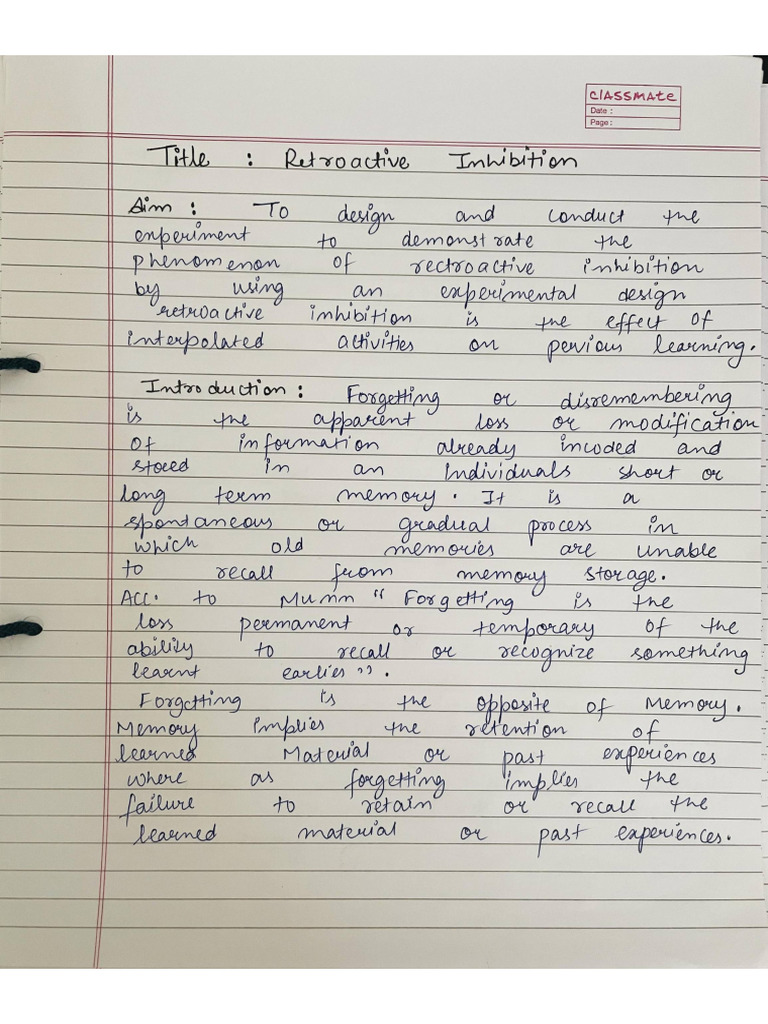 classmate
Date :
Page :
Title : Retroactive Inhibition
Aim : To design and conduct the
experiment to demonstrate the
phenomenon of rectroactive inhibition
by using an experimental design
retroactive inhibition is the effect of
interpolated activities on pervious learning.
Introduction : Forgetting or disremembering
is the apparent loss or modification
of information already incoded and
stored in an Individuals short or
long term memory. It is a
spontaneous or gradual process in
which old memories are unable
to recall from memory storage.
Acc. to Munn "Forgetting is the
loss permanent or temporary of the
ability to recall or recognize something
learnt earlies".
Forgetting is the opposite of Memory.
Memory implies the retention of
learned Material or past experiences
where as forgetting implies the
failure to retain or recall the
learned material or past experiences.